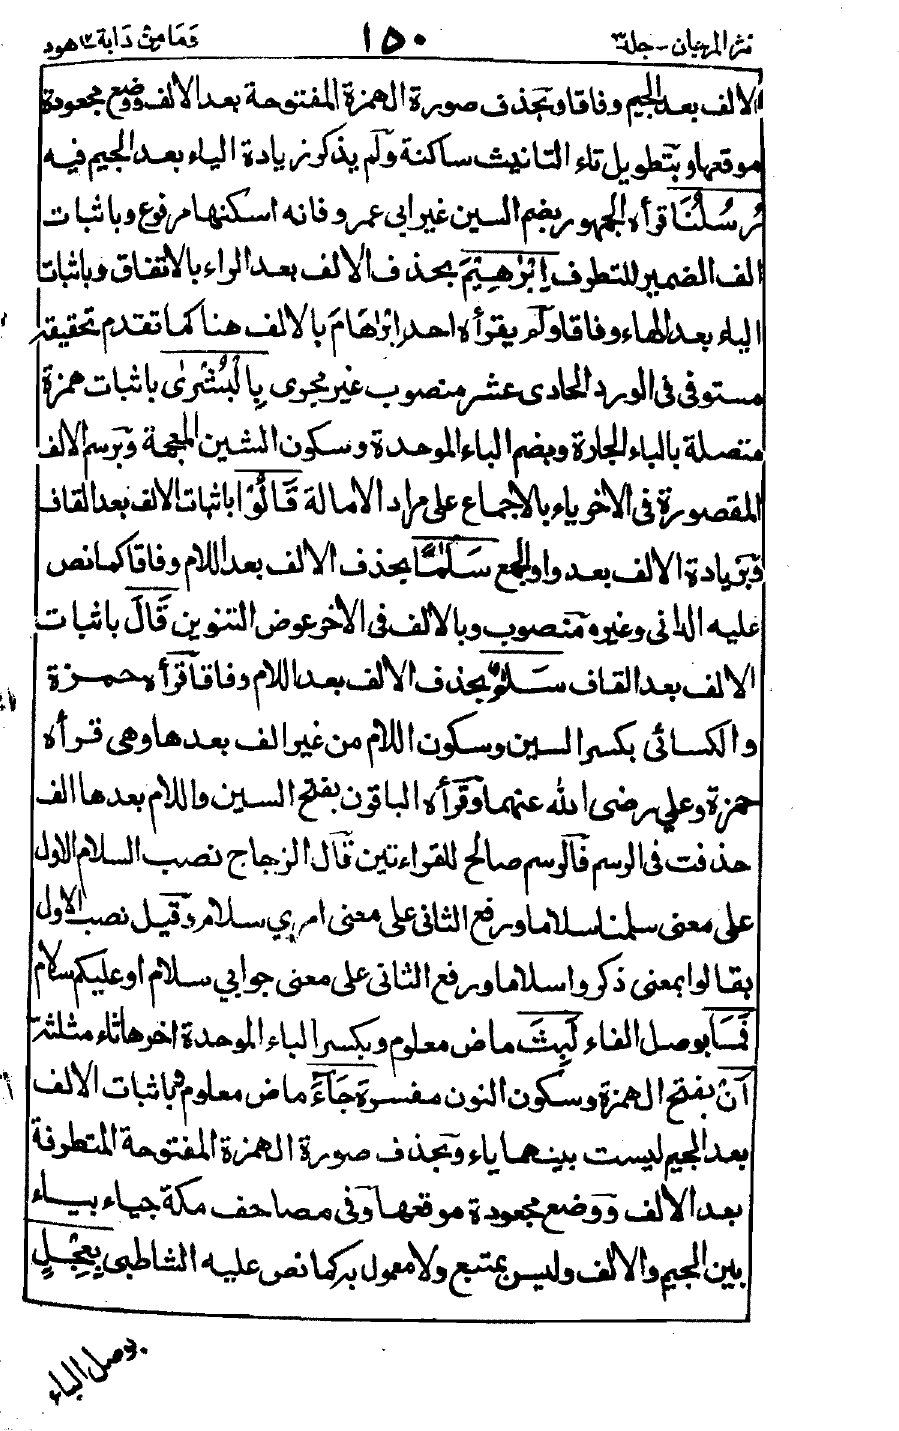 نثر المرجان - جلد ٣ ١٥٠ وَمَا مِنْ دَابة ١٢ هود
الالف بعد الجيم وفاقا وبحذف صورة الهمزة المفتوحة بعد الالف ووضع مجعودة
موقعها وبتطويل تاء التانيث ساكنة ولم يذكر زيادة الياء بعد الجيم فيه
رُسُلُنَا قرأه الجمهور بضم السين غير ابى عمرو فانه اسكنها مرفوع وباثبات
الف الضمير للتطرف اِبْرٰهِيْمَ بحذف الالف بعد الراء بالاتفاق وباثبات
الياء بعد الهاء وفاقا ولم يقرأه احد ابْرَاهَامَ بالالف هنا كما تقدم تحقيقه
مستوفى فى الورد الحادى عشر منصوب غير مجرى بِالْبُشْرٰى باثبات همزة
متصلة بالباء الجارة وبضم الباء الموحدة وسكون الشين المعجمة وبرسم الالف
المقصورة فى الاخر ياء بالاجماع على مراد الامالة قَالُوْا باثبات الالف بعد القاف
وبزيادة الالف بعد واو الجمع سَلٰمًا بحذف الالف بعد اللام وفاقا كما نص
عليه الدانى وغيره منصوب وبالالف فى الاخر عوض التنوين قَالَ باثبات
الالف بعد القاف سَلٰمٌ بحذف الالف بعد اللام وفاقا قرأه حمزة
والكسائى بكسر السين وسكون اللام من غير الف بعدها وهى قرأه
حمزة وعلي رضى الله عنهما وقرأه الباقون بفتح السين واللام بعدها الف
حذفت فى الرسم فالرسم صالح للقراءتين قال الزجاج نصب السلام الاول
على معنى سلمنا سلاما ورفع الثانى على معنى امري سلام وقيل نصب الاول
بقالوا بمعنى ذكروا سلاما ورفع الثانى على معنى جوابي سلام او عليكم سلام
فَمَا بوصل الفاء لَبِثَ ماض معلوم وبكسر الباء الموحدة اخرها ثاء مثلثة
اَنْ بفتح الهمزة وسكون النون مفسرة جَاءَ ماض معلوم وباثبات الالف
بعد الجيم ليست بينهما ياء وبحذف صورة الهمزة المفتوحة المتطرفة
بعد الالف ووضع مجعودة موقعها وفى مصاحف مكة جياء بياء
بين الجيم والالف وليس بمتبع ولا معمول به كما نص عليه الشاطبى بِعِجْلٍ
بوصل الباء